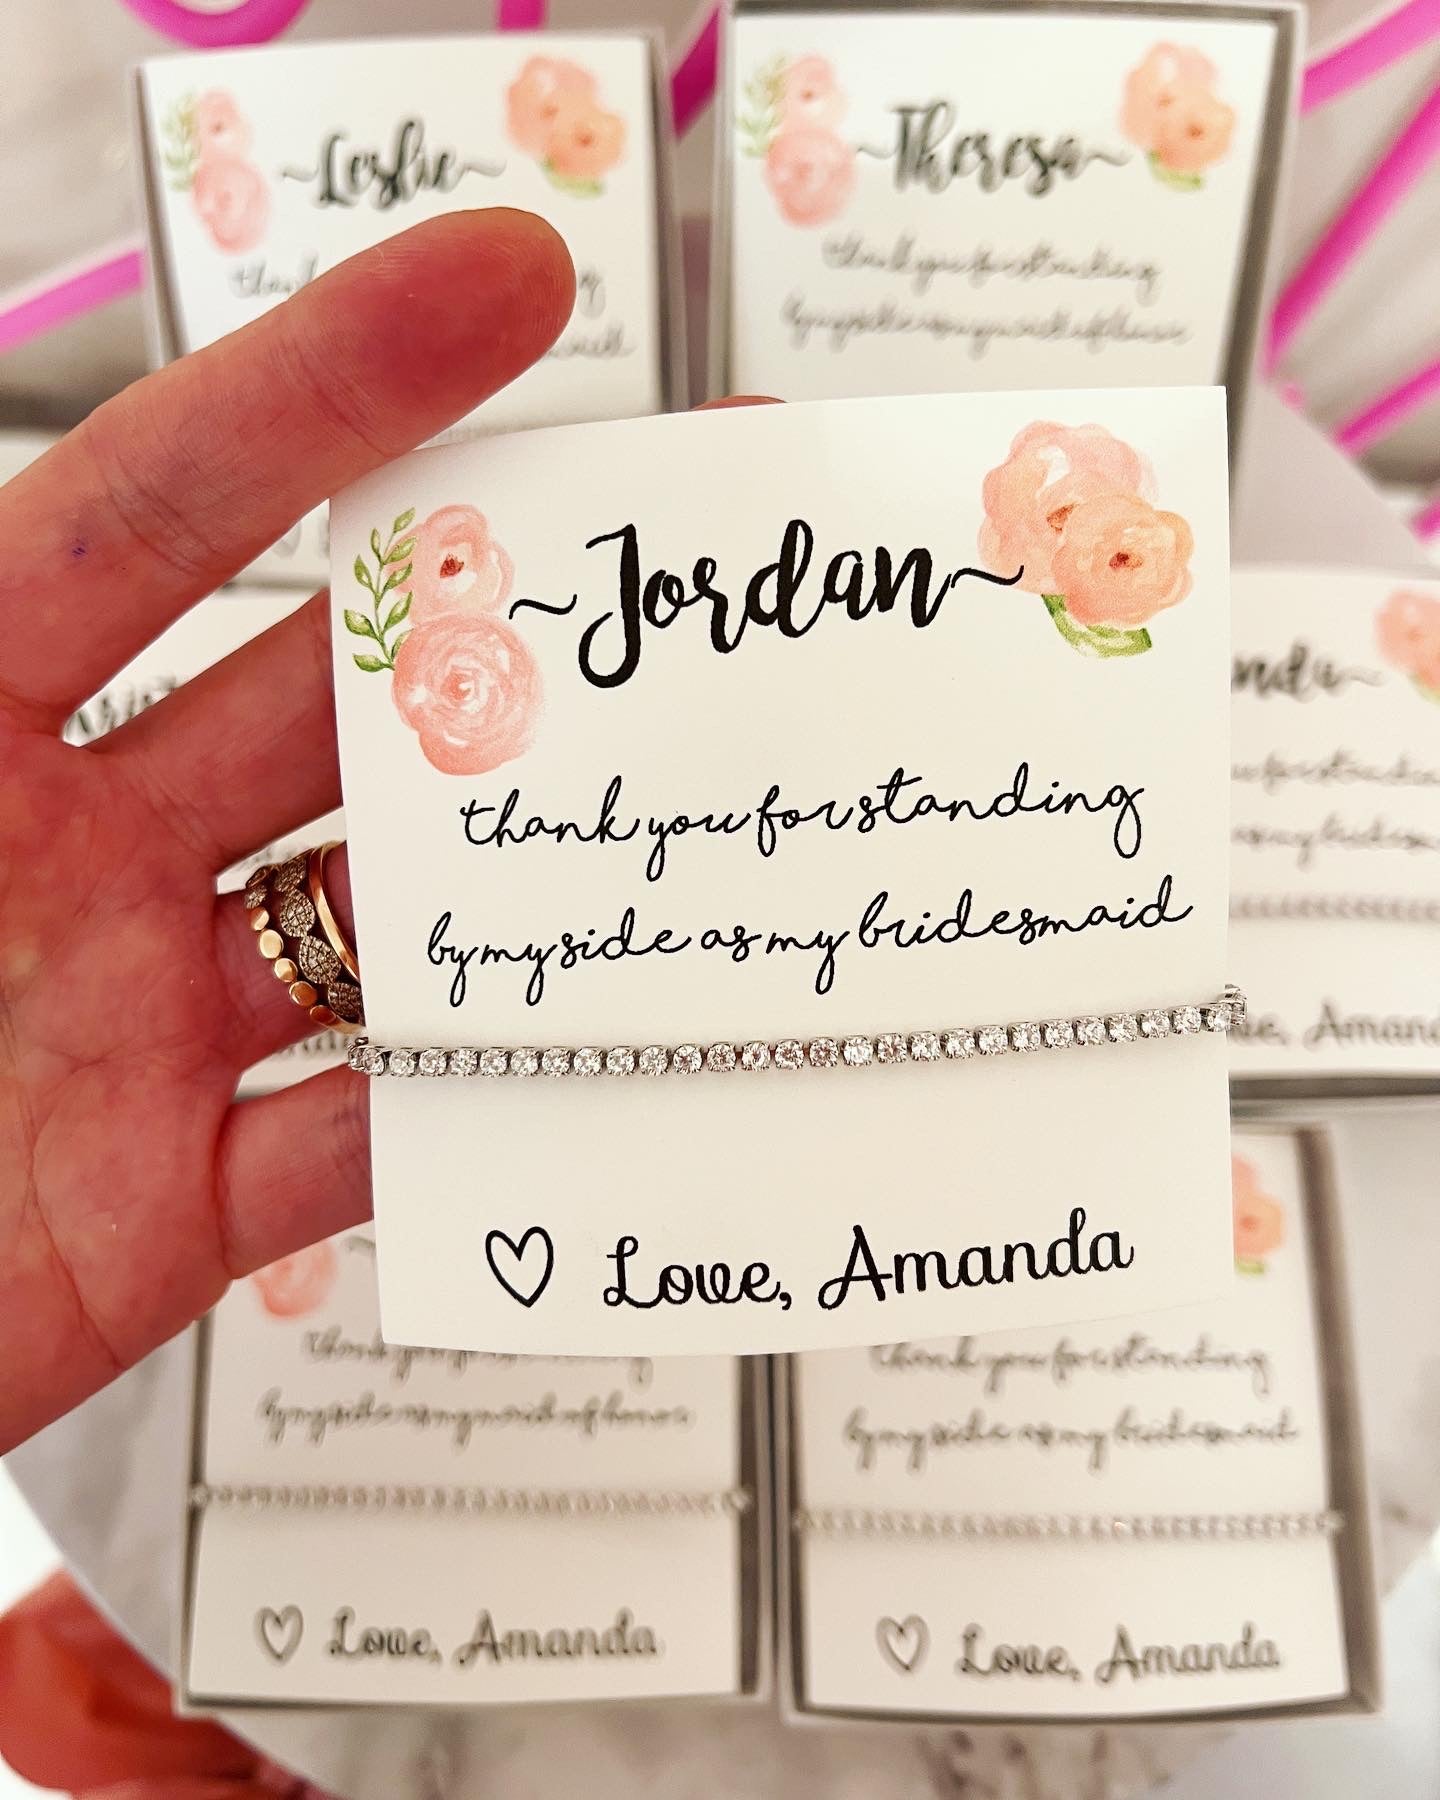 ~Leslie~
~Theresa~
thank you for standing
by my side as my maid of honor
~Jordan~
thank you for standing
by my side as my bridesmaid
♡ Love, Amanda
thank you for standing
by my side as my maid of honor
♡ Love, Amanda
thank you for standing
by my side as my bridesmaid
♡ Love, Amanda